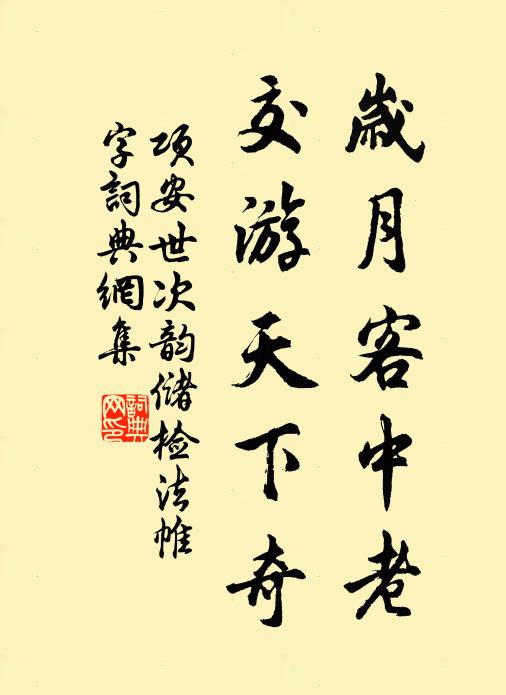 歲月客中老
交游天下奇
项安世次韵儲检法帷
字詞典網集
詞典
网印